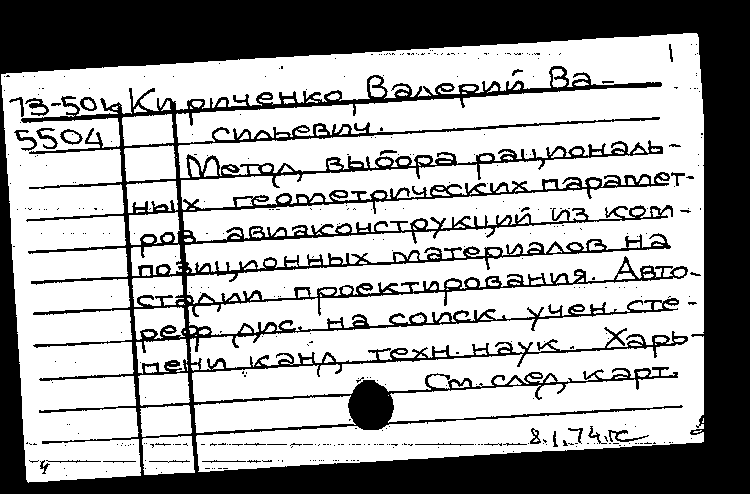 1
73-504 Кириченко, Валерий Ва-
5504 сильевич.
Метод выбора рациональ-
ных геометрических парамет-
ров авиаконструкций из ком-
позиционных материалов на
стадии проектирования. Авто-
реф. дис. на соиск. учен. сте-
пени канд. техн. наук. Харь-
См. след. карт.
8.1.74.